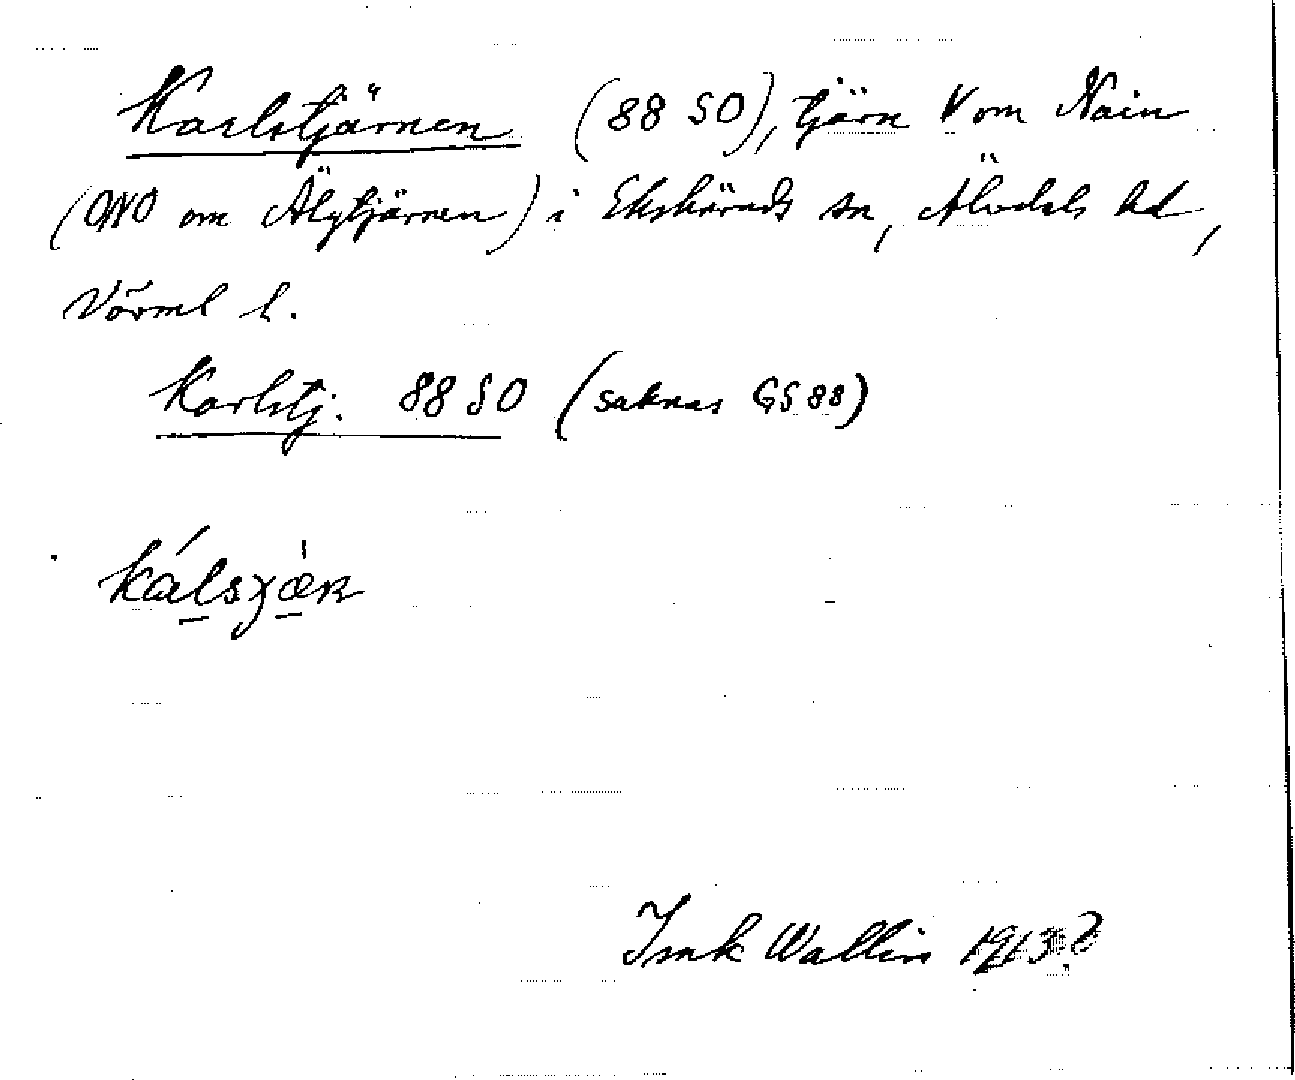 Karlstjärnen (88 SO), tjärn V om Nain
(ONO om Älgtjärnen) i Ekshärads sn, Älvdals hd,
Värml l.
Karlstj. 88 SO (saknas GS 88)
Isak Wallin 1913?